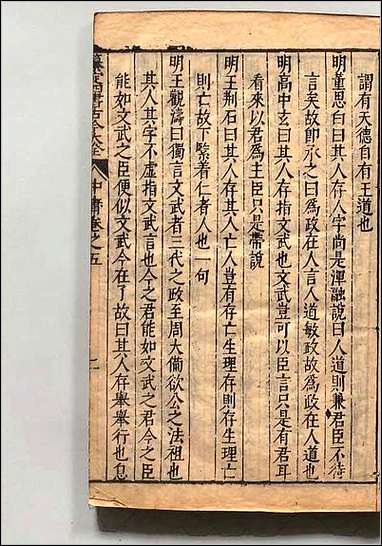 謂有天德自有王道也
明董思白曰其人存人字尚是渾融說曰人道則兼君臣不待
言矣故即承之曰爲政在人言人道敏政故爲政在人道也
明高中玄曰其人指文武也文武豈可以臣言只是有君耳
看來以君爲主臣只是帶說
明王荆石曰其人存其人亡人豈有存亡生理存則存生理亡
則亡故下緊着仁者人也一句
明王觀濤曰獨言文武者三代之政至周大備欲公之法祖也
其人其字不虛指文武言也今之君能如文武之君今之臣
能如文武之臣便似文武今在了故曰其人存舉舉行也息
中庸卷之五